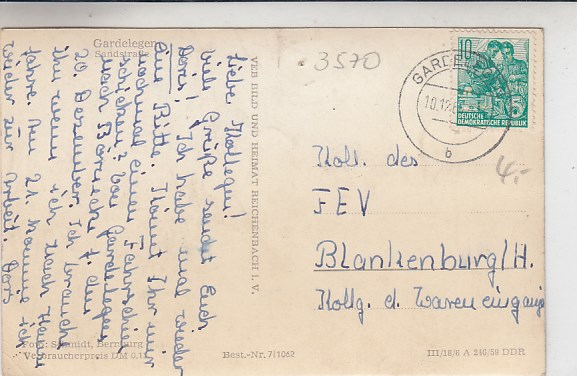 Gardelegen
Sandstraße
Liebe Kollegin!
Viele Grüße sendet Euch
Doris! Ich habe mal wieder
eine Bitte. Könnt Ihr mir
nochmal einen Fahrschein
schicken? Von Gardelegen
nach Börnecke f. den
20. Dezember. Ich brauch
ihn wenn ich nach Hause
fahre. Am 21. komme ich
wieder zur Arbeit. Doris
Foto: Schmidt, Bernburg
Verbraucherpreis DM 0.15
VEB BILD UND HEIMAT REICHENBACH I. V.
Best.-Nr. 7/1062
3570
GARDELEGEN
10.12.
b
10
5
DEUTSCHE
DEMOKRATISCHE REPUBLIK
4.-
Koll. des
FEV
Blankenburg/H.
Kollg. d. Wareneingang
III/18/6 A 240/59 DDR